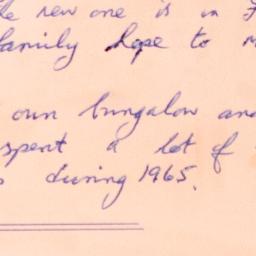 he new one is in
family hope to
own bungalow and
spent a lot of
during 1965.